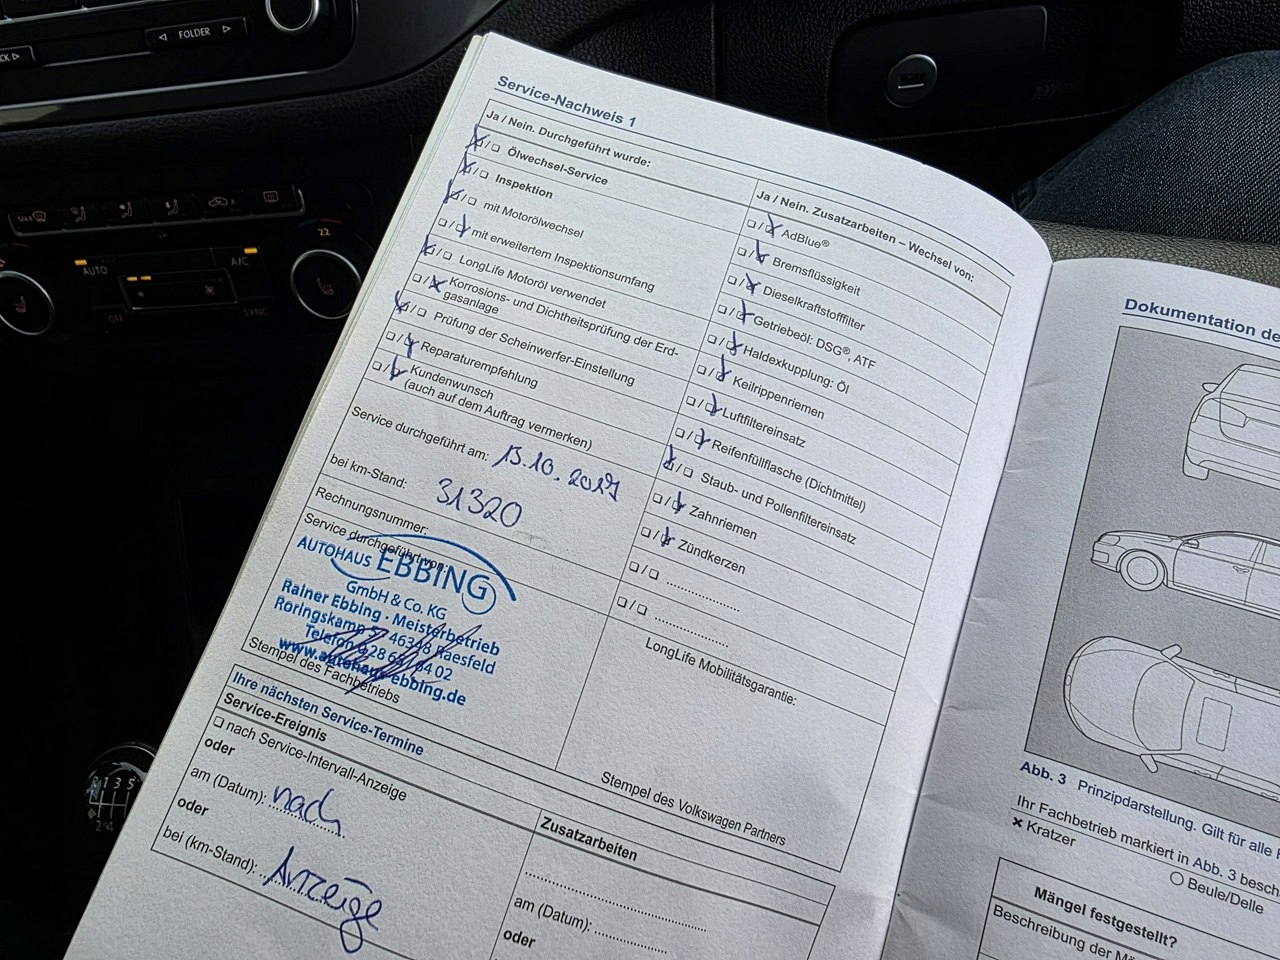 FOLDER
22
AUTO
A/C
OFF
SYNC
R 1 3 5
2 4
Service-Nachweis 1
Ja / Nein. Durchgeführt wurde:
❏ / ❏ Ölwechsel-Service
❏ / ❏ Inspektion
❏ / ❏ mit Motorölwechsel
❏ / ❏ mit erweitertem Inspektionsumfang
❏ / ❏ LongLife Motoröl verwendet
❏ / ❏ Korrosions- und Dichtheitsprüfung der Erd-
gasanlage
❏ / ❏ Prüfung der Scheinwerfer-Einstellung
❏ / ❏ Reparaturempfehlung
❏ / ❏ Kundenwunsch
(auch auf dem Auftrag vermerken)
Service durchgeführt am: 13.10.2017
bei km-Stand: 31320
Rechnungsnummer:
Service durchgeführt von:
AUTOHAUS EBBING
GmbH & Co. KG
Rainer Ebbing · Meisterbetrieb
Roringskamp 5, 46348 Raesfeld
Telefon
www.autohaus-ebbing.de
Stempel des Fachbetriebs
Ja / Nein. Zusatzarbeiten – Wechsel von:
❏ / ❏ AdBlue®
❏ / ❏ Bremsflüssigkeit
❏ / ❏ Dieselkraftstofffilter
❏ / ❏ Getriebeöl: DSG®, ATF
❏ / ❏ Haldexkupplung: Öl
❏ / ❏ Keilrippenriemen
❏ / ❏ Luftfiltereinsatz
❏ / ❏ Reifenfüllflasche (Dichtmittel)
❏ / ❏ Staub- und Pollenfiltereinsatz
❏ / ❏ Zahnriemen
❏ / ❏ Zündkerzen
❏ / ❏ ....................
❏ / ❏ ....................
LongLife Mobilitätsgarantie:
Stempel des Volkswagen Partners
Ihre nächsten Service-Termine
Service-Ereignis
❏ nach Service-Intervall-Anzeige
oder
am (Datum): nach
oder
bei (km-Stand): Anzeige
Zusatzarbeiten
am (Datum): ....................
oder
Dokumentation de
Abb. 3 Prinzipdarstellung. Gilt für alle
Ihr Fachbetrieb markiert in Abb. 3 besch
✖ Kratzer
○ Beule/Delle
Mängel festgestellt?
Beschreibung der Mä